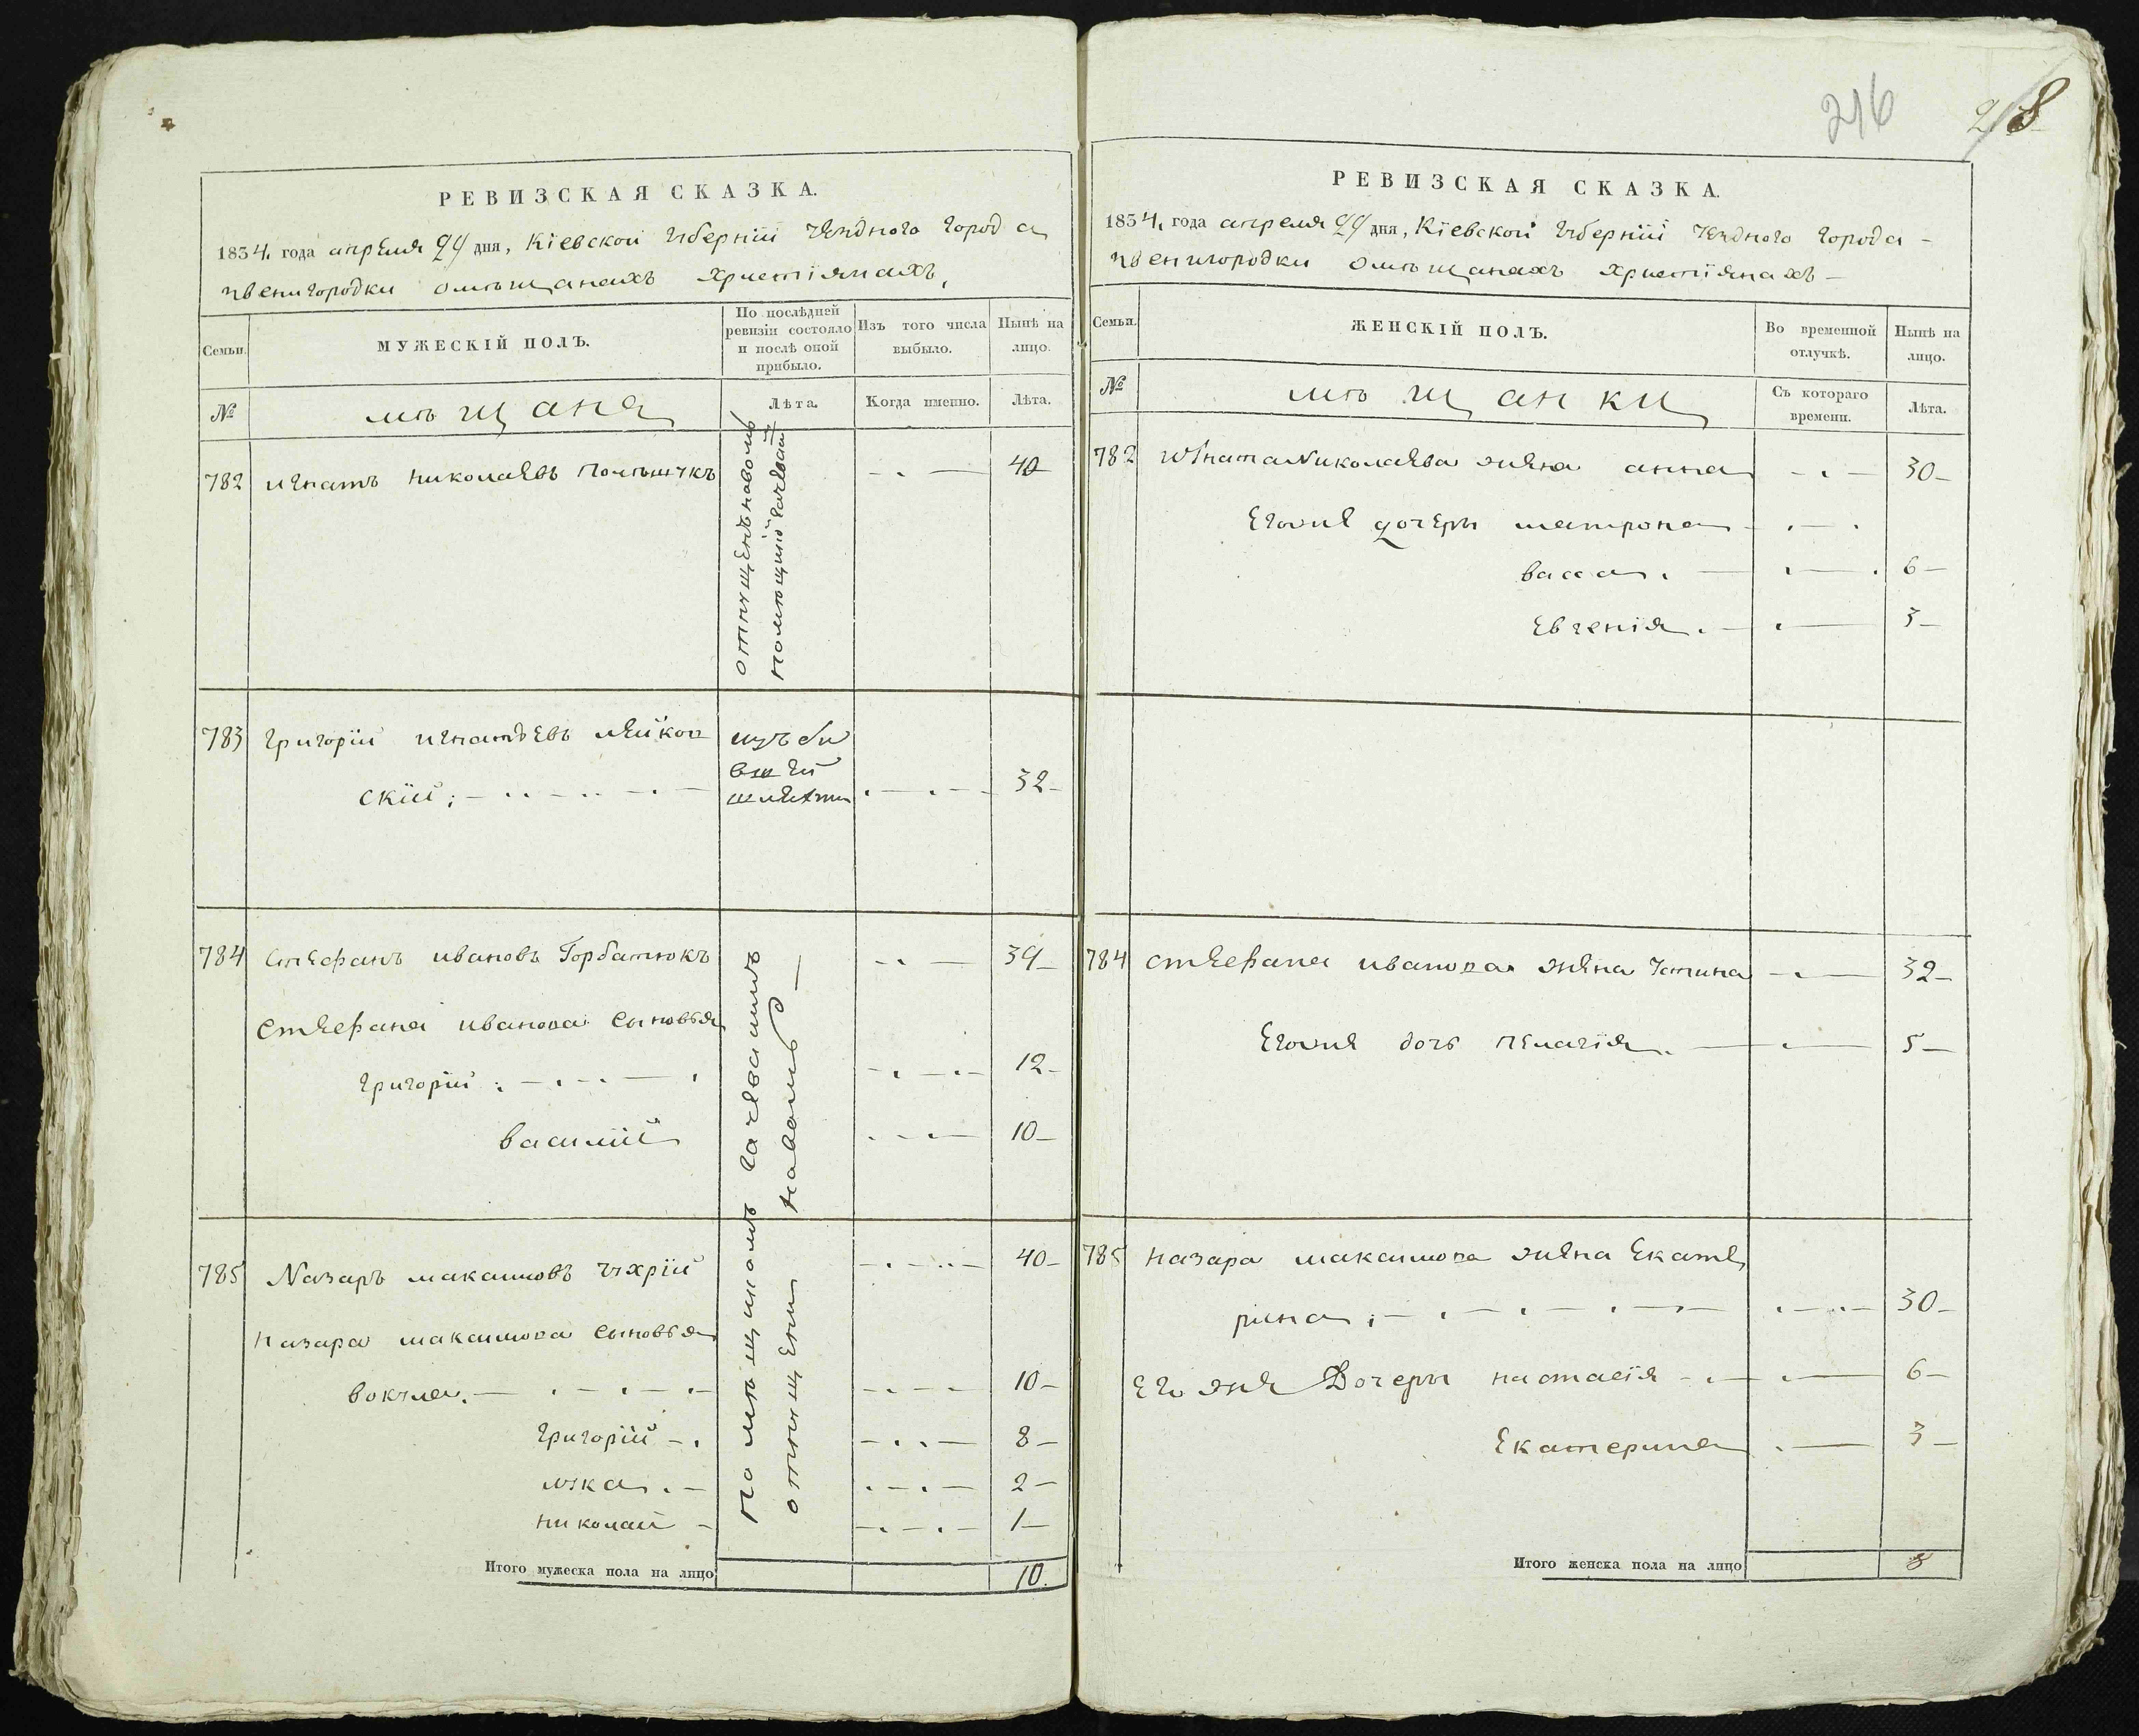 216
218
РЕВИЗСКАЯ СКАЗКА.
1834, года апреля 24 дня, Кіевской губерніи уезднаго города
звенигородки омѣщанахъ христіянахъ,
Семьи.
МУЖЕСКІЙ ПОЛЪ.
По послѣдней ревизіи состояло и послѣ оной прибыло.
Изъ того числа выбыло.
Нынѣ на лицо.
№
мѣщане
Лѣта.
Когда именно.
Лѣта.
782 игнатъ николаевъ 40
отпущенъ наволю
783 григорій игнатьевъ
скій; изъ бы
вшей
шляхти 32
784 Стефанъ ивановъ Горбатюкъ 39
Стефана иванова сыновья
григорій 12
василій 10
785 Назаръ максимовъ 40
назара максимова сыновья
вокула 10
григорій 8
лука 2
николай 1
помѣщикомъ
отпущени наволю
Итого мужеска пола на лицо 10.
РЕВИЗСКАЯ СКАЗКА.
1834, года апреля 24 дня, Кіевской губерніи уезднаго города
звенигородки омѣщанахъ христіянахъ
Семьи.
ЖЕНСКІЙ ПОЛЪ.
Во временной отлучкѣ.
Нынѣ на лицо.
№
мѣщанки
Съ котораго времени.
Лѣта.
782 игната николаева жена анна 30
Егоже дочеры матрона
васса 6
Евгенія 3
784 стефана иванова жена устина 32
Егоже дочь пелагія 5
785 назара максимова жена Екате
рина 30
Его же Дочеры настасія 6
Екатерина 3
Итого женска пола на лицо 8